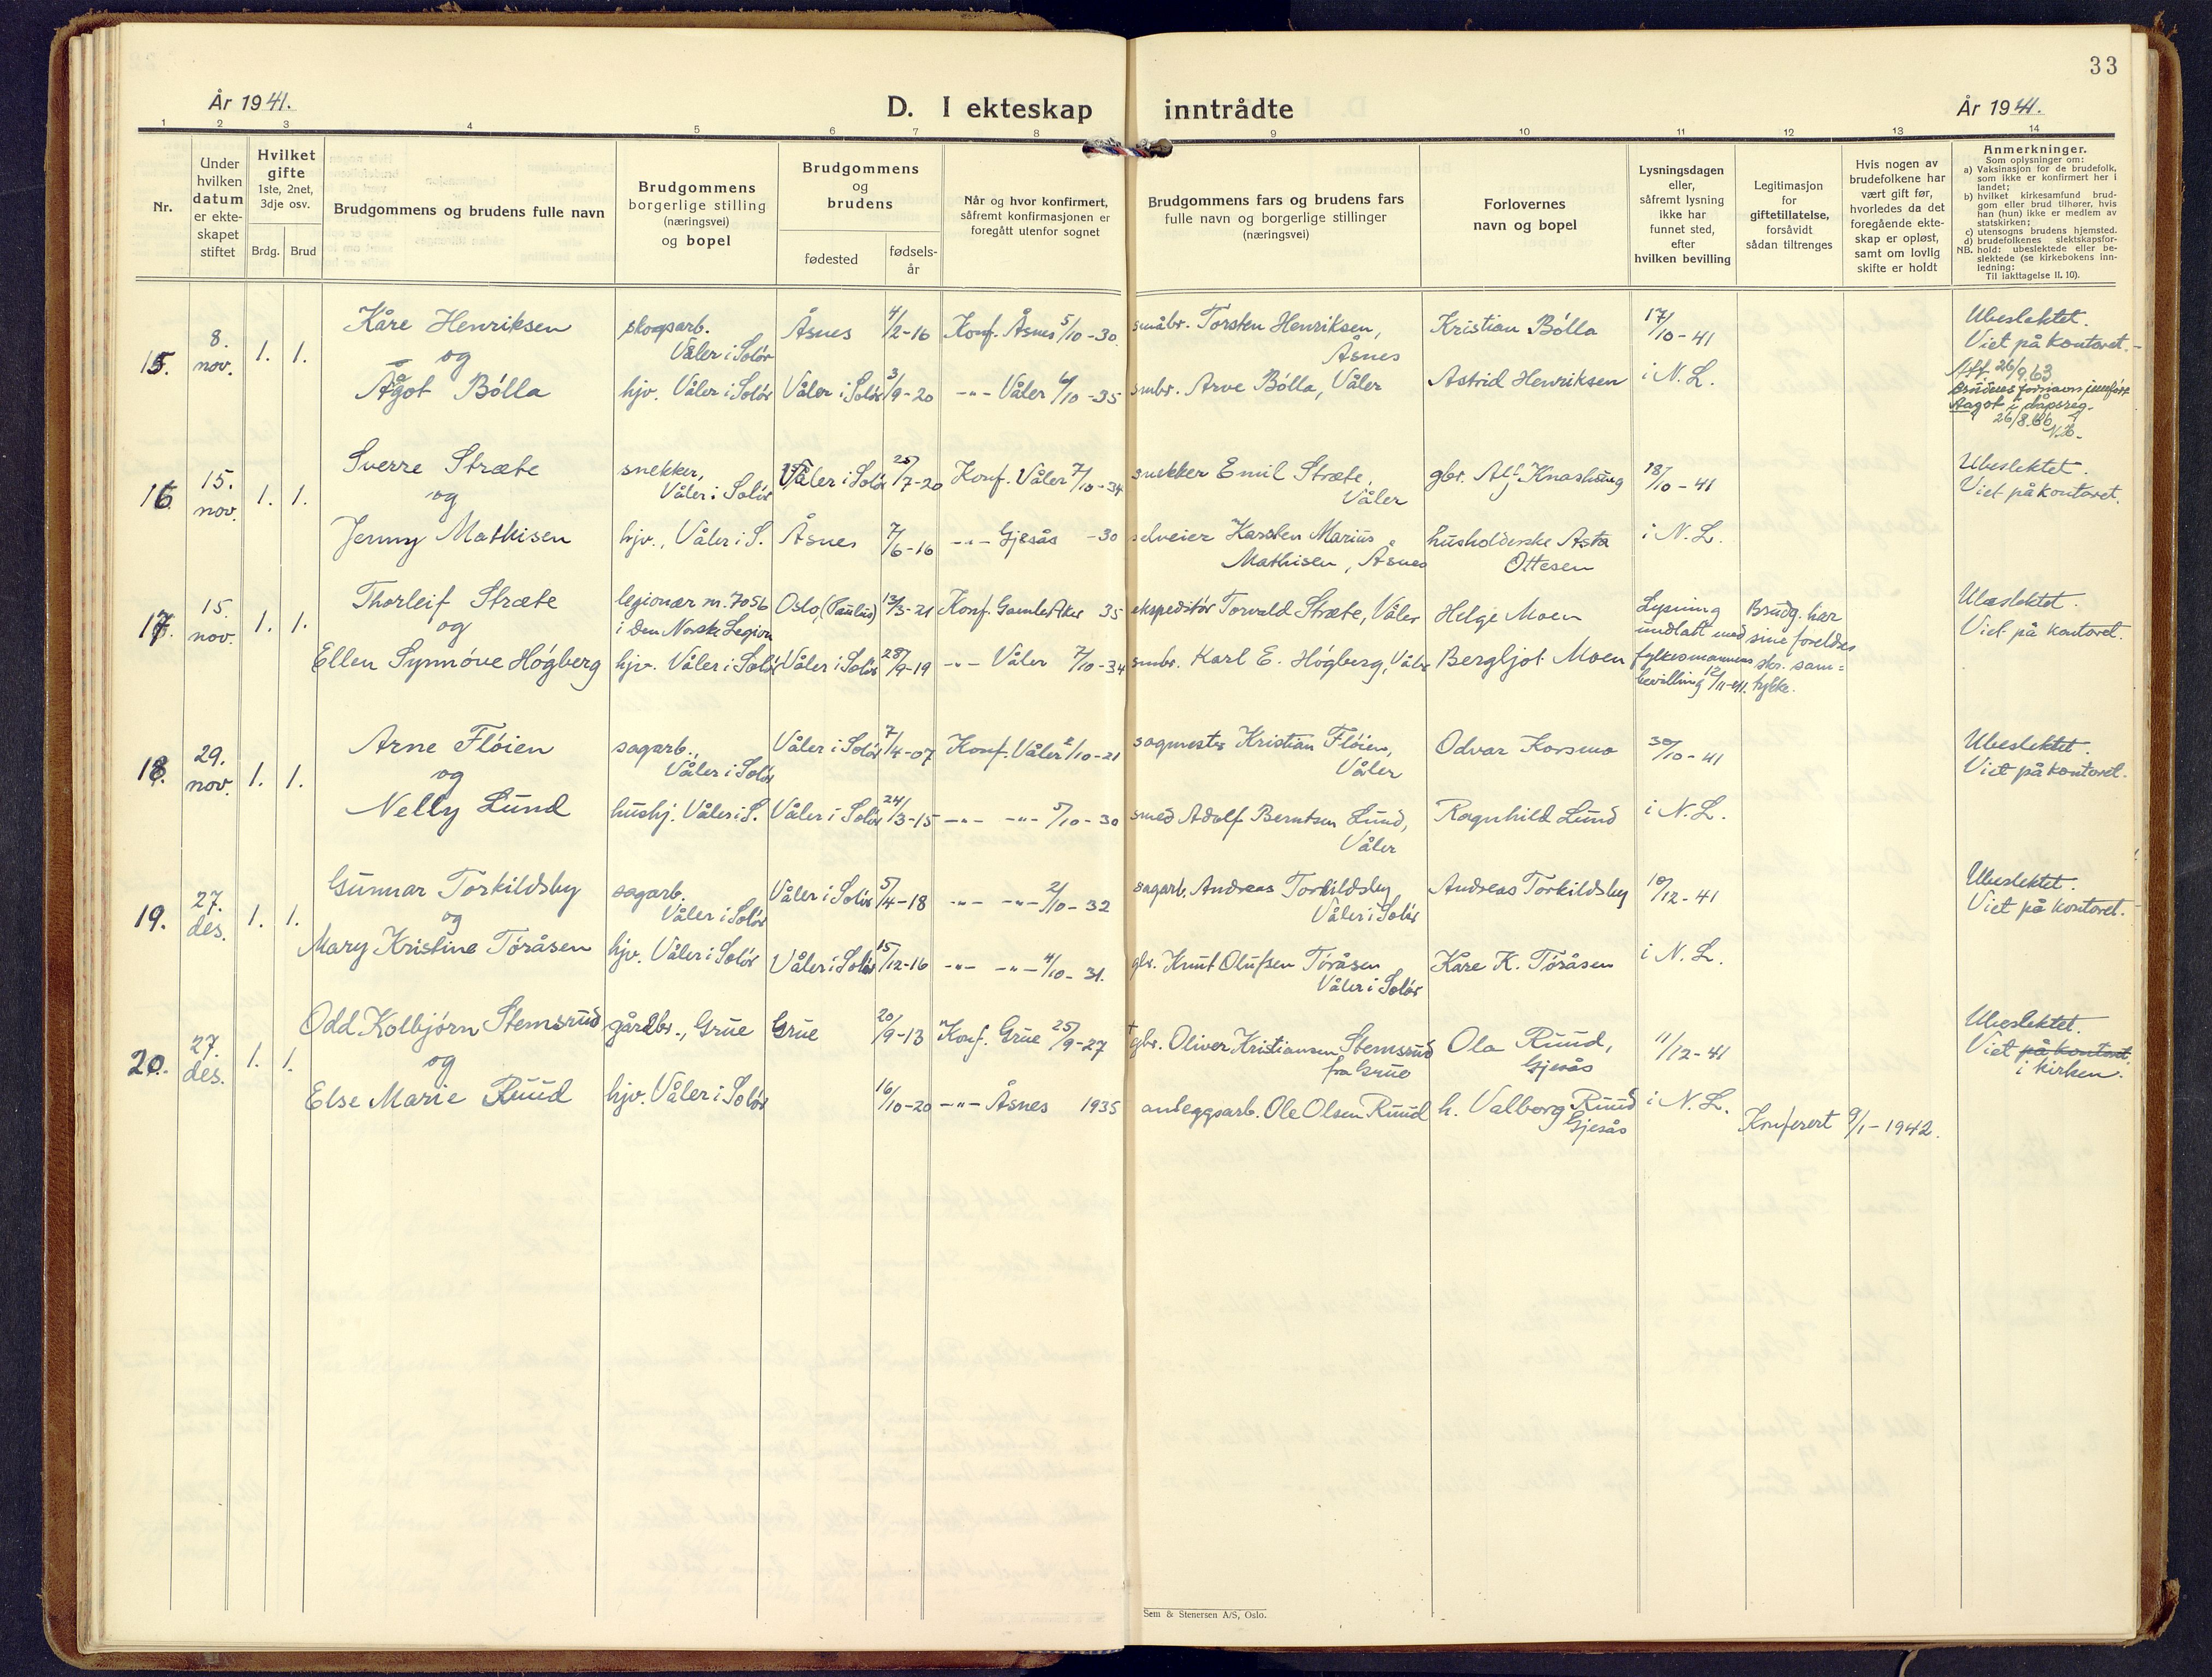 33
År 1941.
D. I ekteskap inntrådte
År 1941.
1 2 3 4 5 6 7 8 9 10 11 12 13 14
Nr.
Under
hvilken
datum
er ekte-
skapet
stiftet
Hvilket
gifte
1ste, 2net,
3dje osv.
Brdg. Brud
Brudgommens og brudens fulle navn
Brudgommens
borgerlige stilling
(næringsvei)
og bopel
Brudgommens
og
brudens
fødested
fødsels-
år
Når og hvor konfirmert,
såfremt konfirmasjonen er
foregått utenfor sognet
Brudgommens fars og brudens fars
fulle navn og borgerlige stillinger
(næringsvei)
Forlovernes
navn og bopel
Lysningsdagen
eller,
såfremt lysning
ikke har
funnet sted,
efter
hvilken bevilling
Legitimasjon
for
giftetillatelse,
forsåvidt
sådan tiltrenges
Hvis nogen av
brudefolkene har
vært gift før,
hvorledes da det
foregående ekte-
skap er opløst,
samt om lovlig
skifte er holdt
Anmerkninger.
Som oplysninger om:
a) Vaksinasjon for de brudefolk,
som ikke er konfirmert her i
landet;
b) hvilket kirkesamfund brud-
gom eller brud tilhører, hvis
han (hun) ikke er medlem av
statskirken;
c) utensogns brudens hjemsted.
d) brudefolkenes slektskapsfor-
hold: ubeslektede eller be-
slektede (se kirkebokens inn-
ledning:
NB.
Til iakttagelse II. 10).
15. 8. nov. 1. 1.
Kåre Henriksen
og
Ågot Bólla
skogsarb.
Våler i Solør
hjv. Våler i Solør
Åsnes 4/2-16 Konf. Åsnes 5/10-30.
Våler i Solør 3/9-20 -"- Våler 6/10-35
småbr. Torsten Henriksen,
Åsnes
smbr. Arve Bólla, Våler
Kristian Bólla
Astrid Henriksen
17/10-41
i N. L.
Ubeslektet.
Viet på kontoret.
Aff. 26/9.63
Brudens fornavn innført
Aagot i dåpsreg.
26/8.66
16. 15. nov. 1. 1.
Sverre Stræte
og
Jenny Mathisen
snekker,
Våler i Solør
hjv., Våler i S.
Våler i Solør 25/7-20 Konf. Våler 7/10-34
Åsnes 7/6-16 -"- Gjesås -30
snekker Emil Stræte,
Våler
selveier Karsten Marius
Mathisen, Åsnes
gbr. Alf Knashaug
husholderske Asta
Ottesen
18/10-41
i N. L.
Ubeslektet.
Viet på kontoret.
17. 15. nov. 1. 1.
Thorleif Stræte
og
Ellen Synnóve Hógberg
legionær nr. 7056
i Den Norske Legion
hjv. Våler i Solør
Oslo, (Paulus) 13/3-21 Konf. Gamle Aker 35
Våler i Solør 28/9-19 -"- Våler 7/10-34
ekspeditór Torvald Stræte, Våler
smbr. Karl E. Hógberg, Våler
Helge Moen
Bergljot Moen
Lysning
undlatt med
fylkesmannens
bevilling 12/11-41.
Brudg. har
sine foreldres
skr. sam=
tykke.
Ubeslektet.
Viet på kontoret.
18. 29. nov. 1. 1.
Arne Flóien
og
Nelly Lund
sagarb.,
Våler i Solør
hushj. Våler i S.
Våler i Solør 7/4-07 Konf. Våler /10-21
Våler i Solør 24/3-15 -"- -"- 5/10-30
sagmester Kristian Flóien,
Våler
smed Adolf Berntsen Lund,
Våler
Odvar Korsmo
Ragnhild Lund
30/10-41
i N. L.
Ubeslektet.
Viet på kontoret.
19. 27. des. 1. 1.
Gunnar Torkildsby
og
Mary Kristine Tóråsen
sagarb.
Våler i Solør
hjv. Våler i Solør
Våler i Solør 5/4-18 -"- -"- 2/10-32
Våler i Solør 15/12-16 -"- -"- 4/10-31.
sagarb. Andreas Torkildsby,
Våler i Solør
gbr. Knut Olufsen Tóråsen
Våler i Solør
Andreas Torkildsby
Kåre K. Tóråsen
10/12-41
i N. L.
Ubeslektet.
Viet på kontoret.
20. 27. des. 1. 1.
Odd Kolbjórn Stemsrud
og
Else Marie Ruud
gårdbr., Grue
hjv. Våler i Solør
Grue 20/9-13 Konf. Grue 25/9-27
16/10-20 -"- Åsnes 1935
gbr. Oliver Kristiansen Stemsrud
fra Grue
anleggsarb. Ole Olsen Ruud
Ola Ruud,
Gjesås
h. Valborg Ruud
Gjesås
11/12-41
i N. L.
Konferert 9/1-1942.
Ubeslektet.
Viet på kontoret
i kirken.
Sem & Stenersen A/S, Oslo.